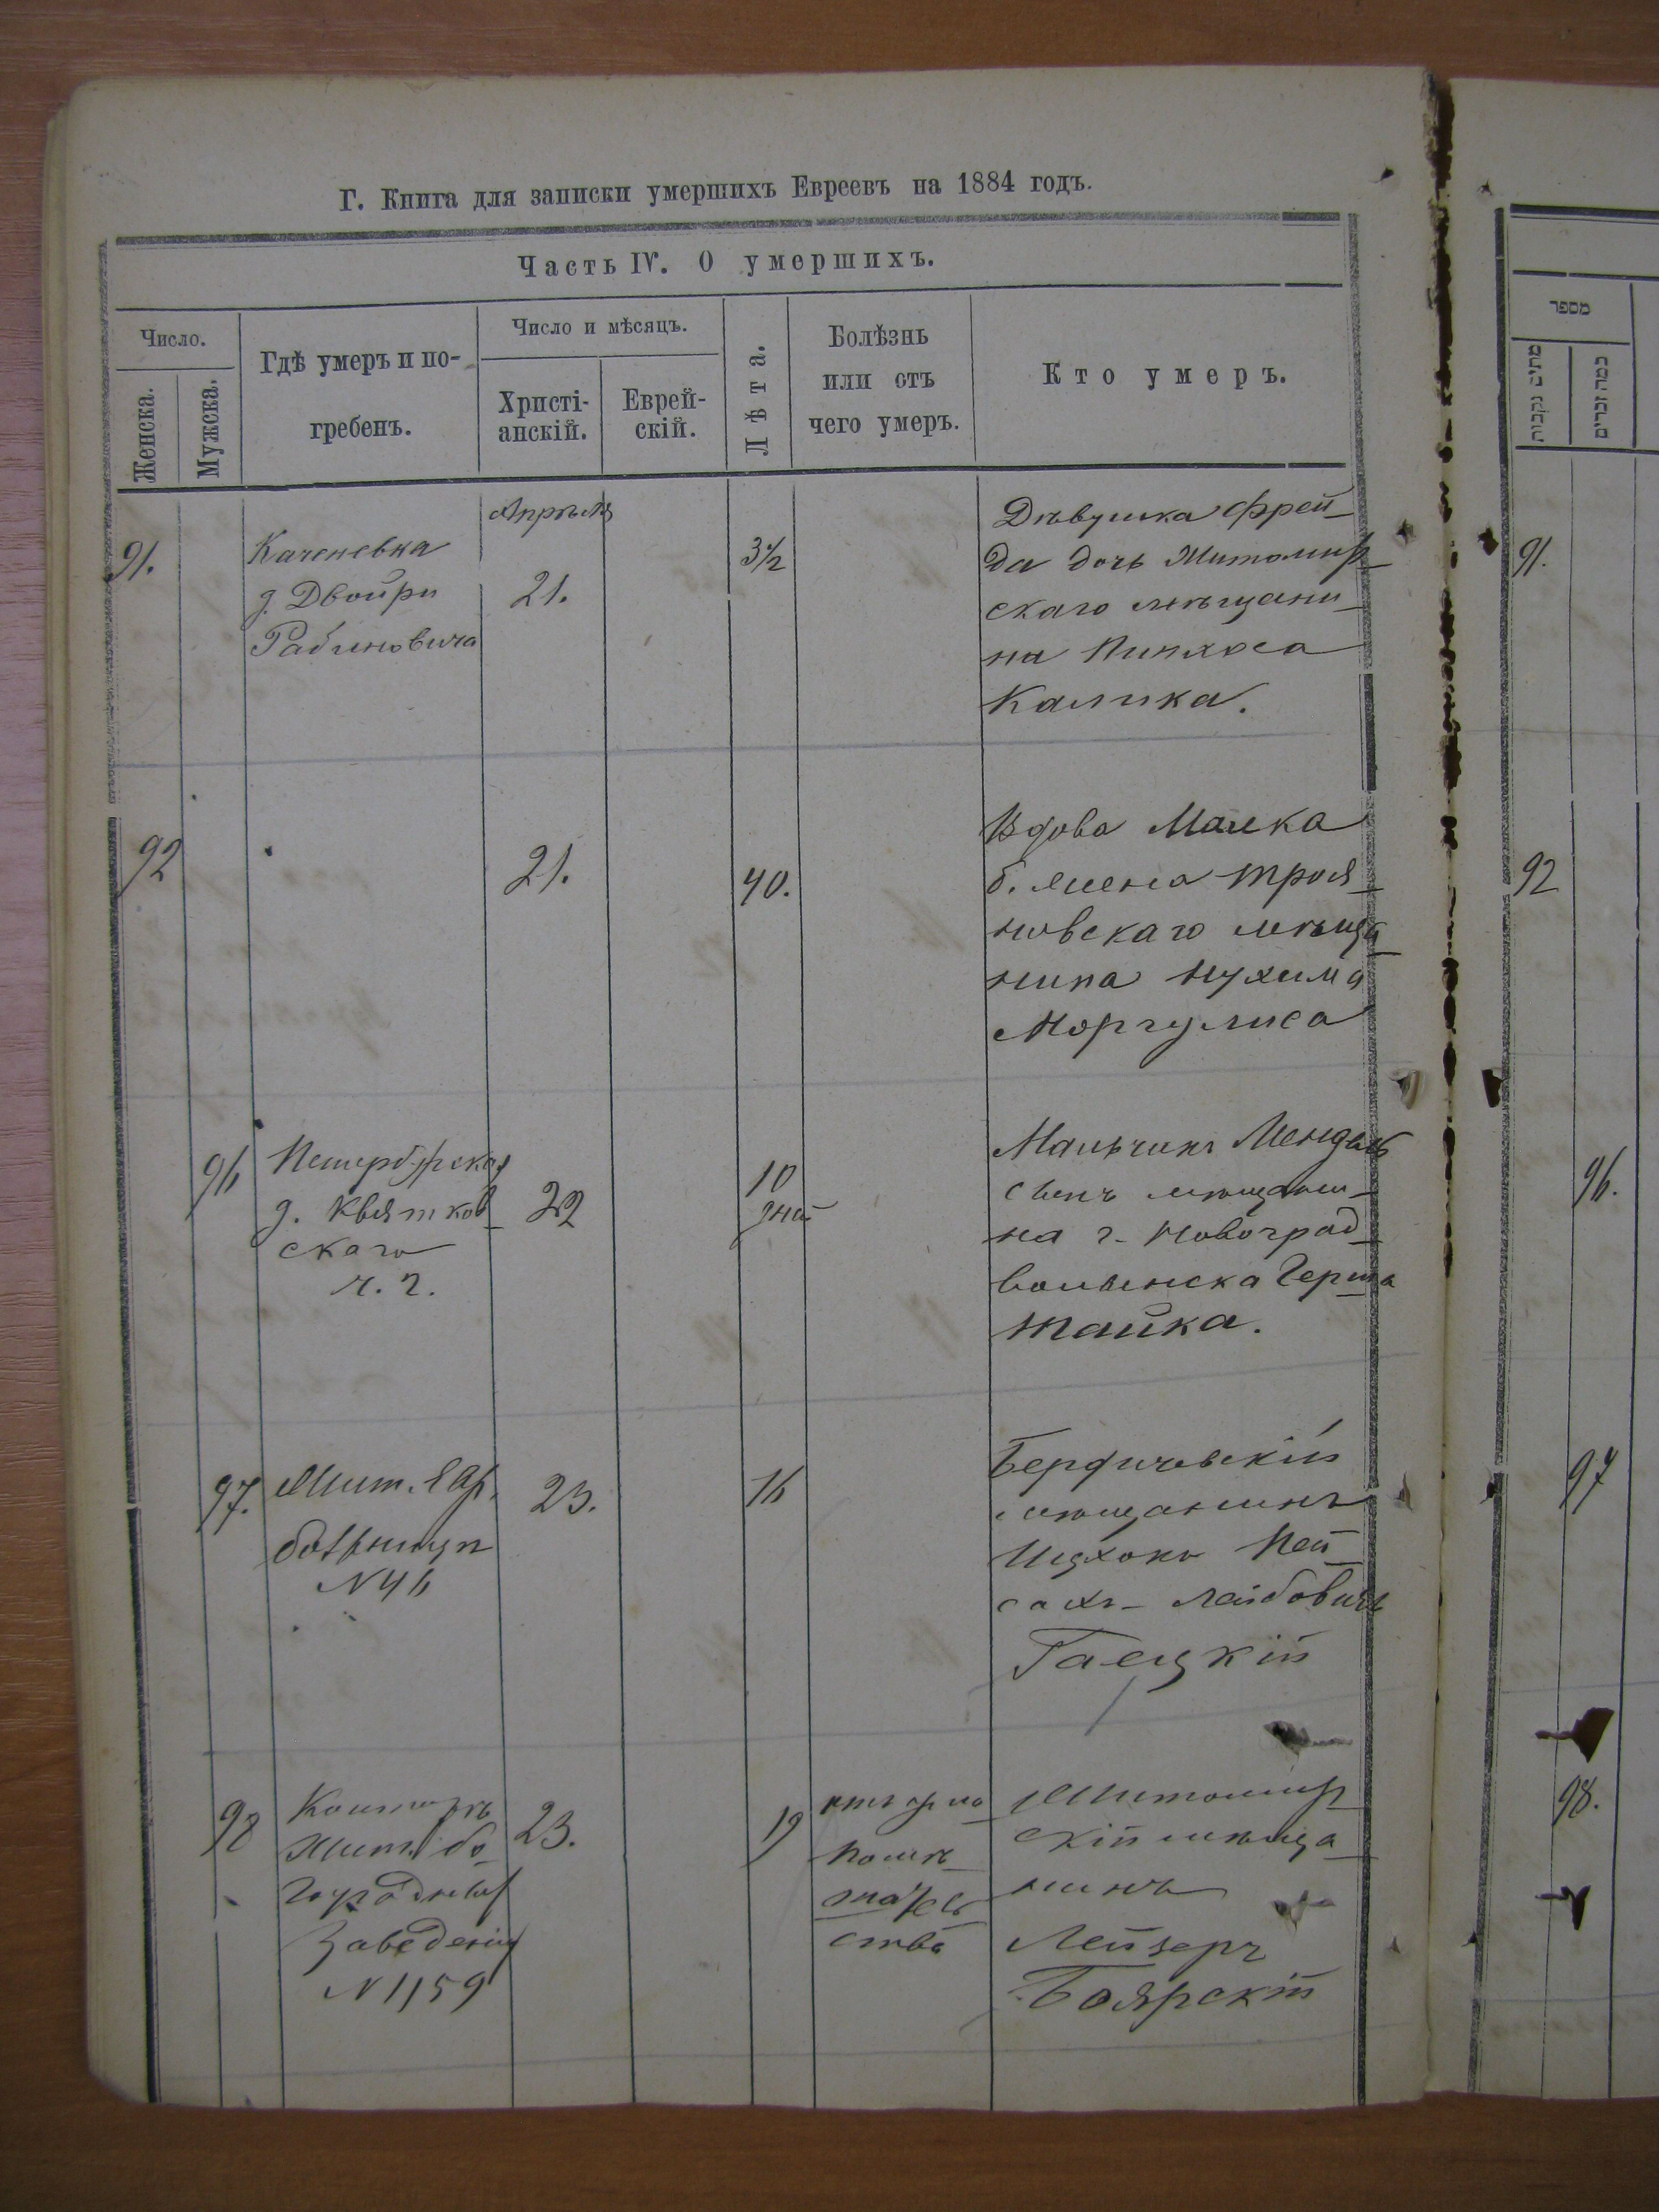 Г. Книга для записки умершихъ Евреевъ на 1884 годъ.
Часть IV. О умершихъ.
Число.
Женска.
Мужска.
Гдѣ умеръ и по-
гребенъ.
Число и мѣсяцъ.
Христі-
анскій.
Еврей-
скій.
Лѣта.
Болѣзнь
или отъ
чего умеръ.
Кто умеръ.
מספר
מתים נקבות
כמה זכרים
91.
Каченевка
д. Двойри
Рабиновича
Апрѣля
21.
3½
Дѣвушка Фрей-
да дочь Житомир-
скаго мѣщани-
на Пинхоса
Калика.
91.
92
21.
40.
Вдова Малка
б. жена троя-
новскаго мѣща-
нина Нухима
Моргулиса
92
96
Петербурская
д. Квятков-
скаго
ч. г.
22
10
дней
Мальчикъ Мендель
сынъ мѣщани-
на г. Новоград-
волынска Герша
Тайка.
96.
97.
Жит. Евр.
больница
N 46
23.
16
Бердичевскій
мѣщанинъ
Ицхокъ Пей-
сахъ- Лейбовичъ
Гаецкій
97
98
Жит. бо-
гоугодныхъ
Заведеній
N 1159
23.
19
помѣ-
шатель-
ства
Житомир-
скій мѣща-
нинъ
Лейзеръ
Боярскій
98.